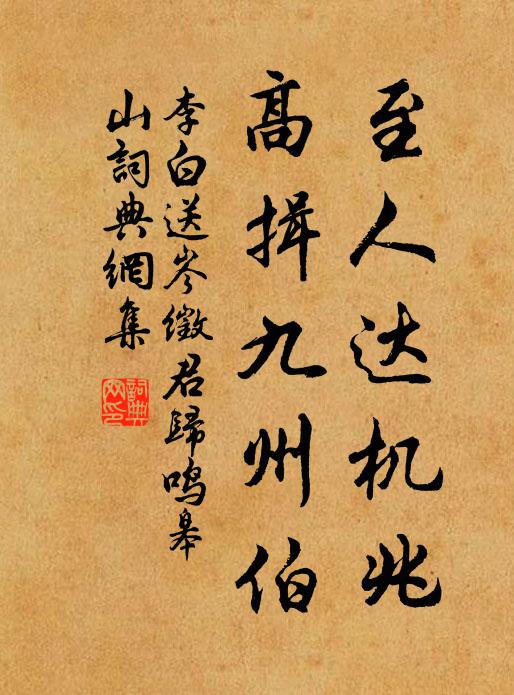 至人达机兆
高揖九州伯
李白送岑徵君歸鸣皋
山詞典網集
詞典网印